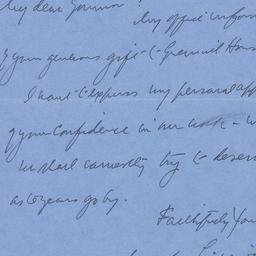 My dear Governor!
My office inform
of your generous gift to Greenwich House
I want to express my personal app
of your confidence in our work - w
we shall earnestly try to deserv
as to years go by.
Faithfully You